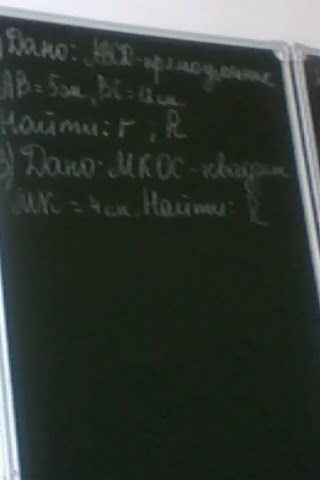 ) Дано: ABCD-прямоугольник
AB = 5см, BC = 12см
Найти: r, R
3) Дано: МКОС-квадрат
МК = 4см. Найти: R